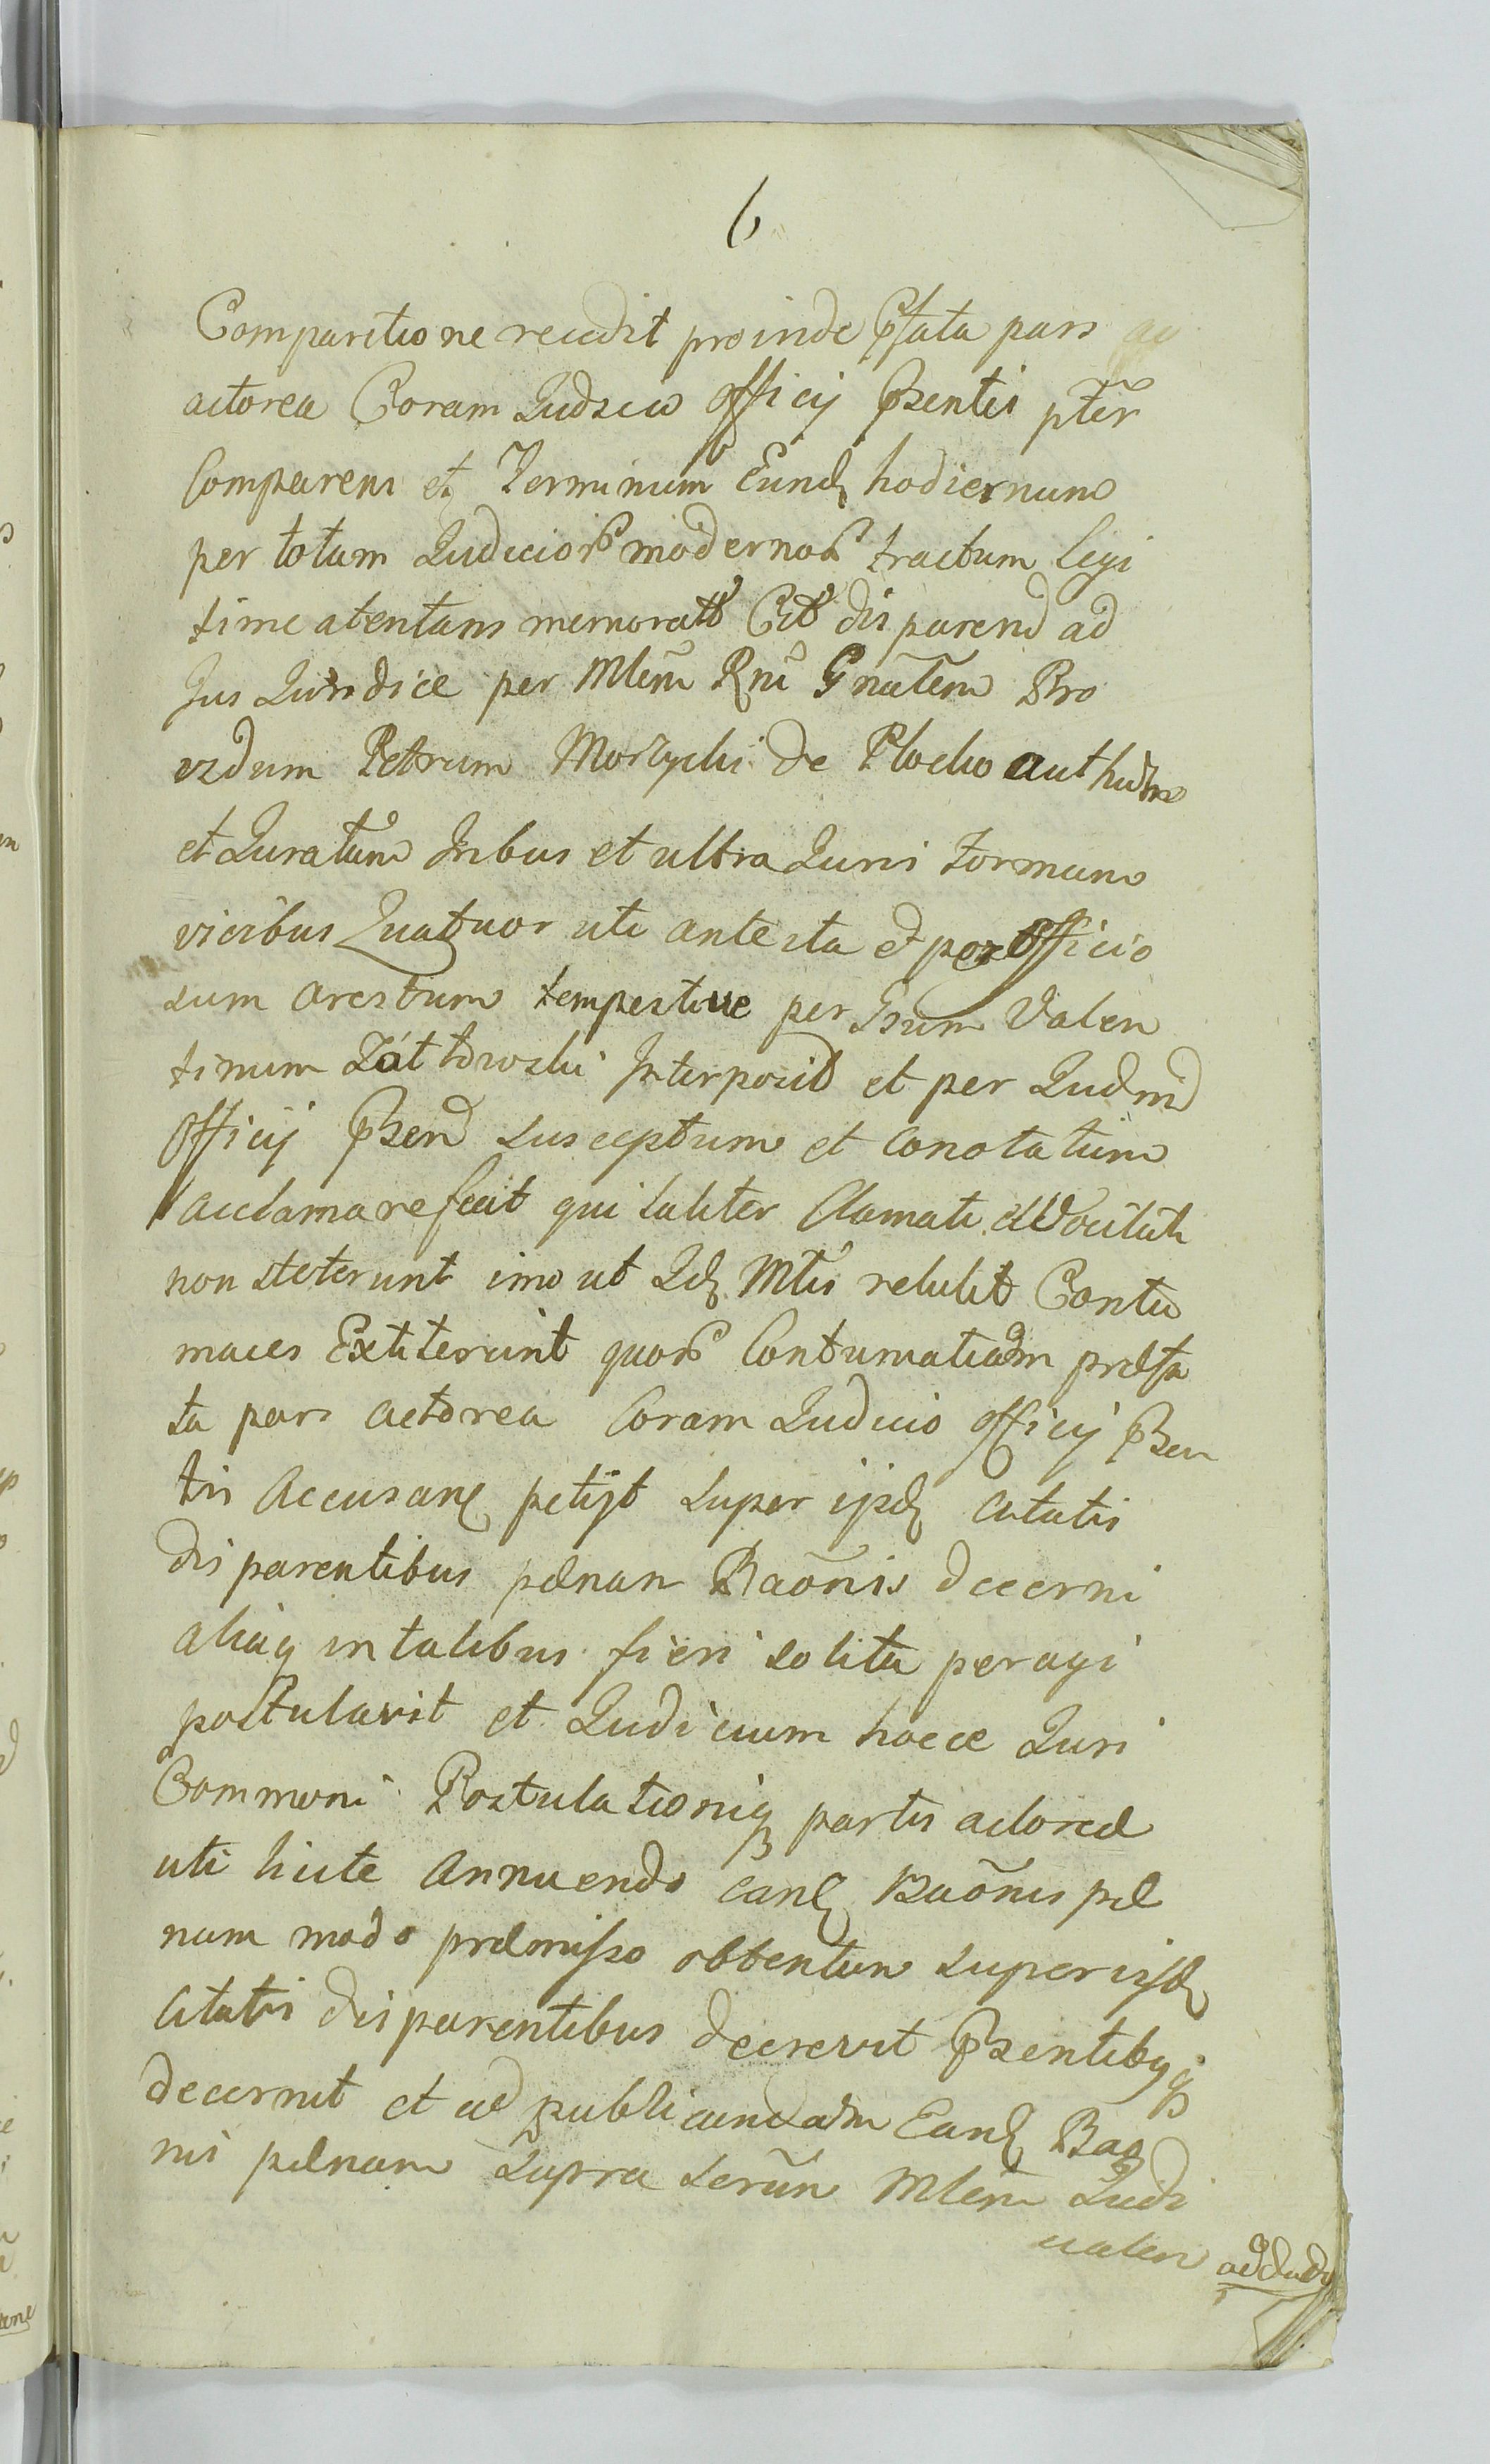 6
Comparitione recedit proinde Pfata pars
actorea Coram Judicio Officij Psentis pter
Comparens et Terminum Eund hodiernum
per totum Judicior modernor tractum legi
time atentans memorat Cit disparend ad
Jus Juridice per Mlem Rni Gnalem Pro
vidum Petrum Morzycki de Plocko authen
et Juratum Inbus et ultra Juris formam
vicibus Quatuor uti antesta et post officio
sum arestum tempestive per Gsum Valen
tinum Zottowski Interposit et per Judm
Officij Psen susceptum et Conotatum
acclamare fecit qui taliter Clamati et Vocitati
non steterunt imo ut Id Mtis retulit Contu
maces Extiterunt quor Contumatiam præfa
ta pars actorea Coram Judicio officij Psen
tis Accusans petijt super ijsd citatis
disparentibus pænam Baonis decerni
aliaq in talibus fieri solita peragi
postulavit et Judicium hocce Juri
Communi Postulationiq partis actoreæ
uti licite Annuendo eand Baonis pæ
nam modo præmisso obtentam super iisd
citatis disparentibus decrevit Psentibq
decernit et ad publicandam Eand Bao
nis pænam supra scrūm Mlem Judi
cialem